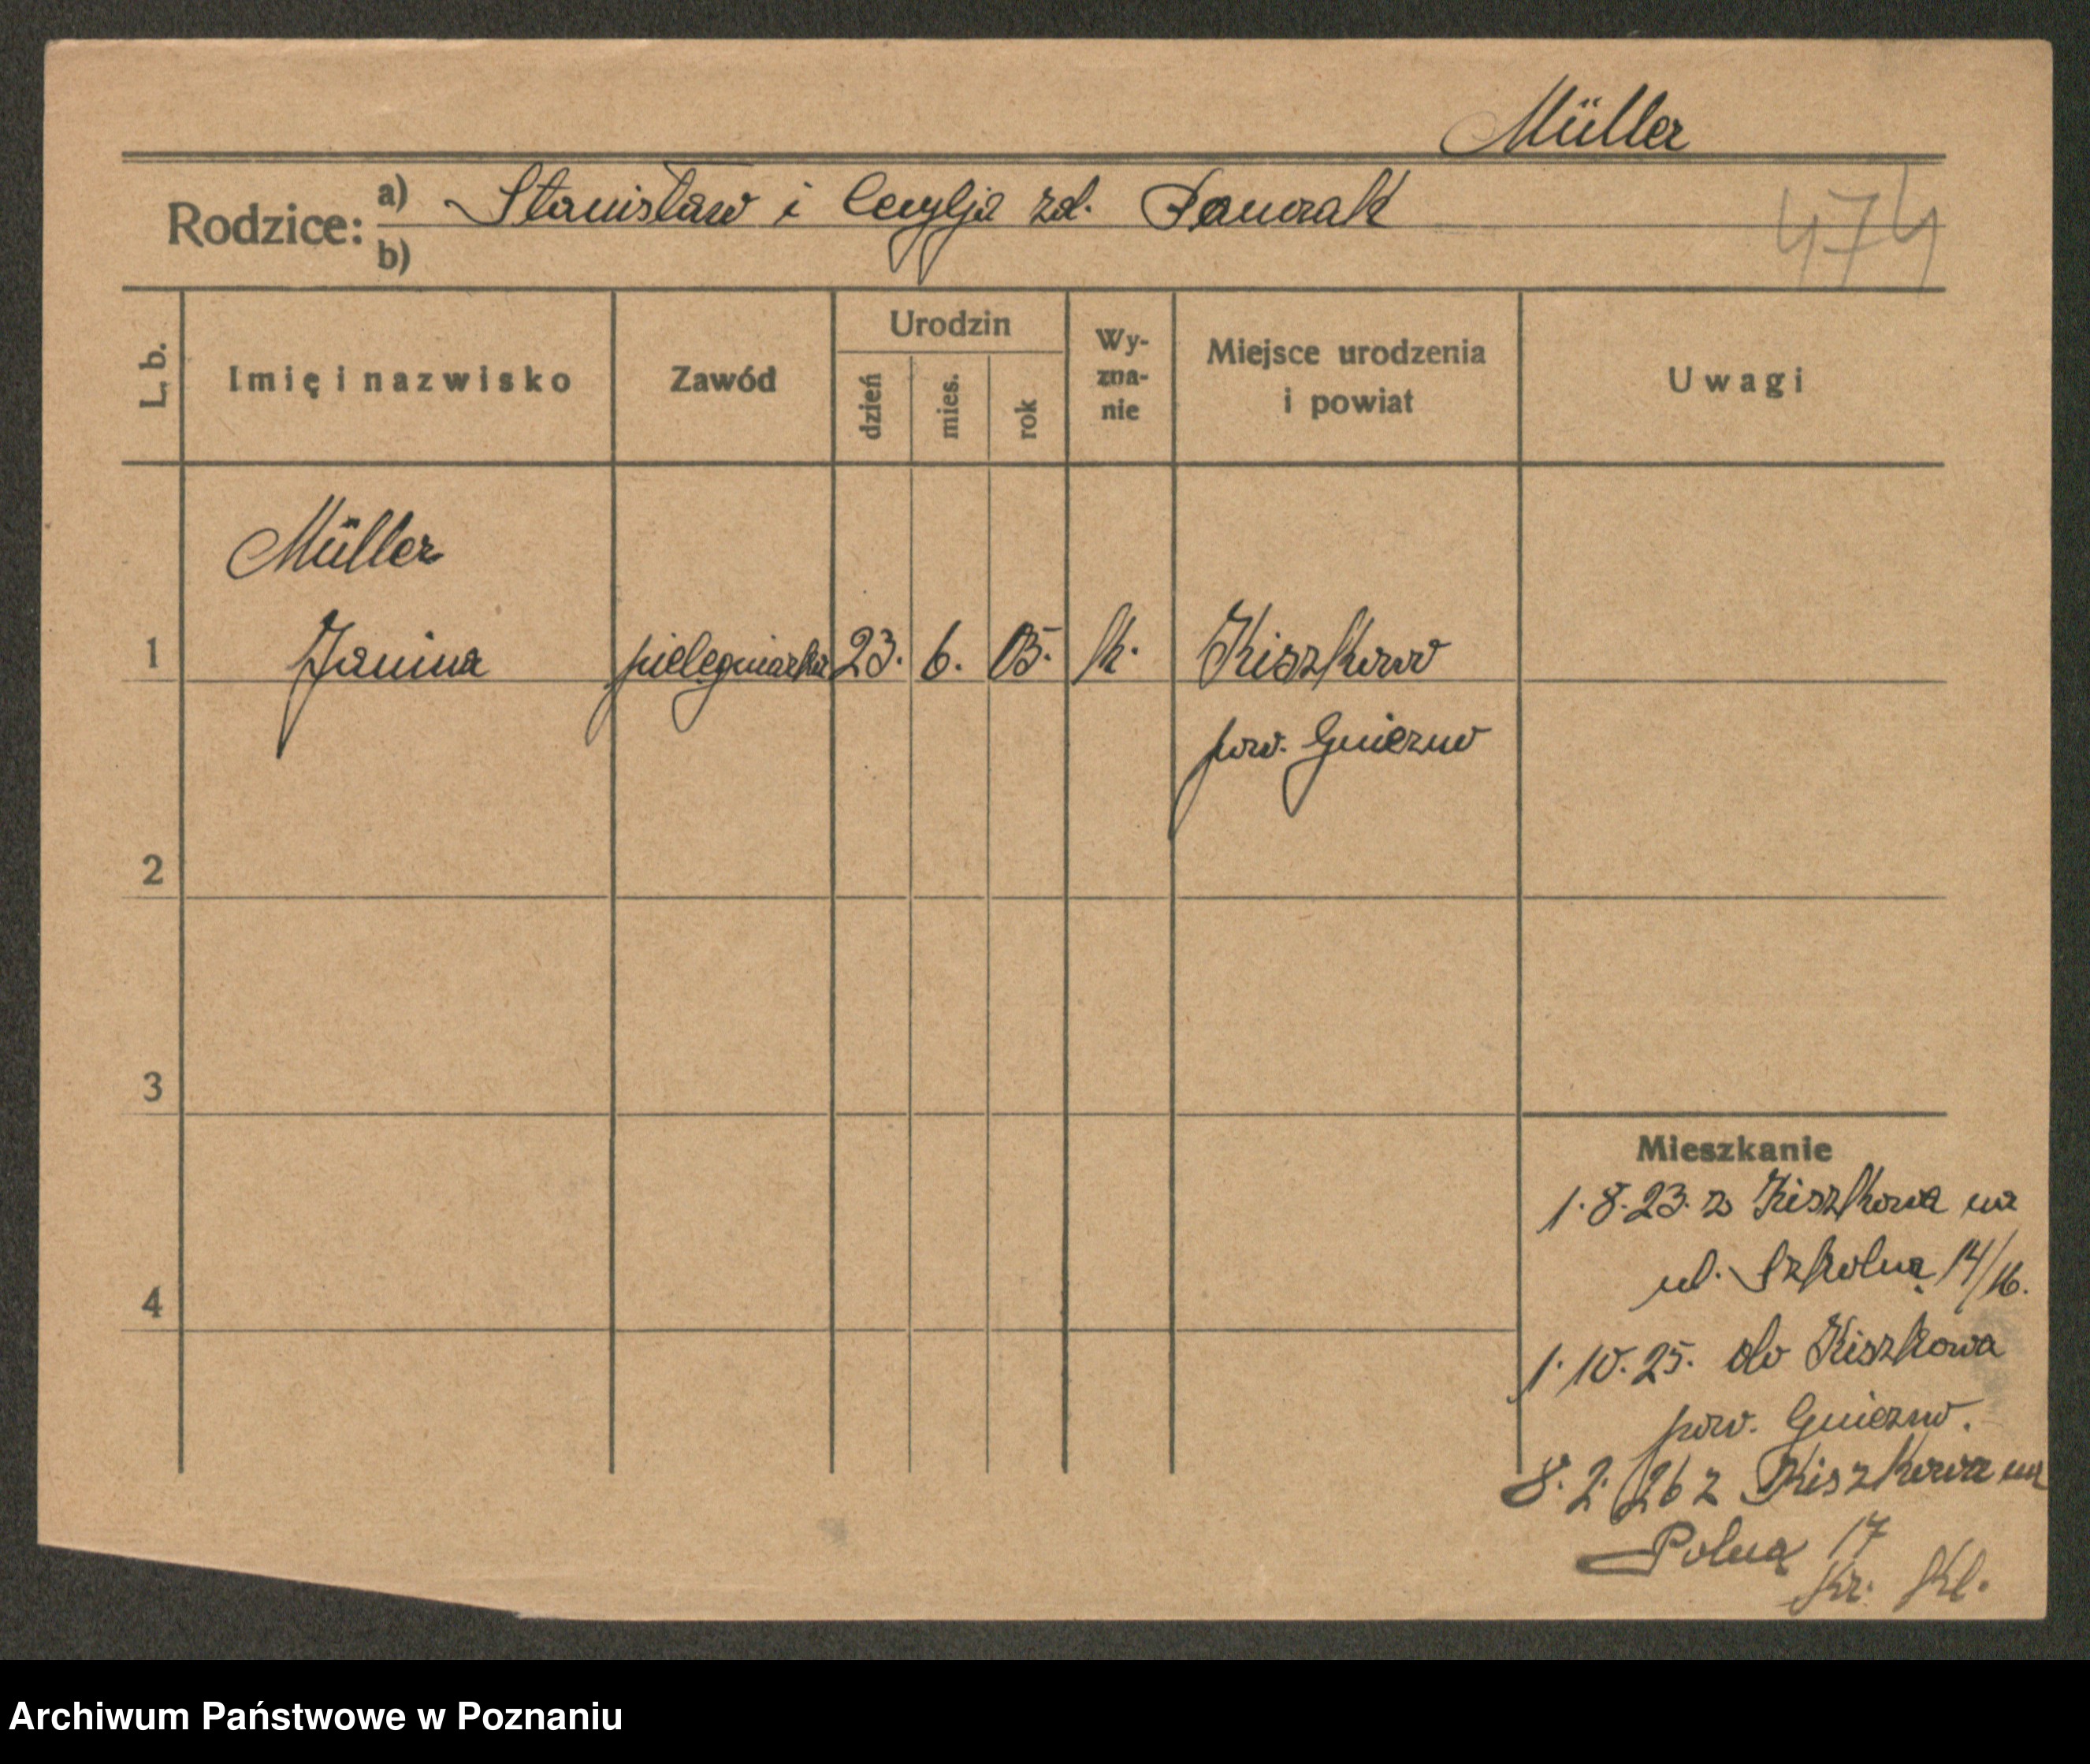 Müller
Rodzice: a) Stanisław i Cecylja zd.
b)
474
L. b.
Imię i nazwisko
Zawód
Urodzin
dzień
mies.
rok
Wy-
zna-
nie
Miejsce urodzenia
i powiat
Uwagi
Müller
1 Janina pielęgniarka 23. 6. 05. k. Kiszkowo
pow. Gniezno
2
3
4
Mieszkanie
1.8.23. z Kiszkowa na
ul. Szkolną 14/16.
1.10.25. do Kiszkowa
pow. Gniezno.
8.2.26 z Kiszkowa na
Polną 17
Archiwum Państwowe w Poznaniu